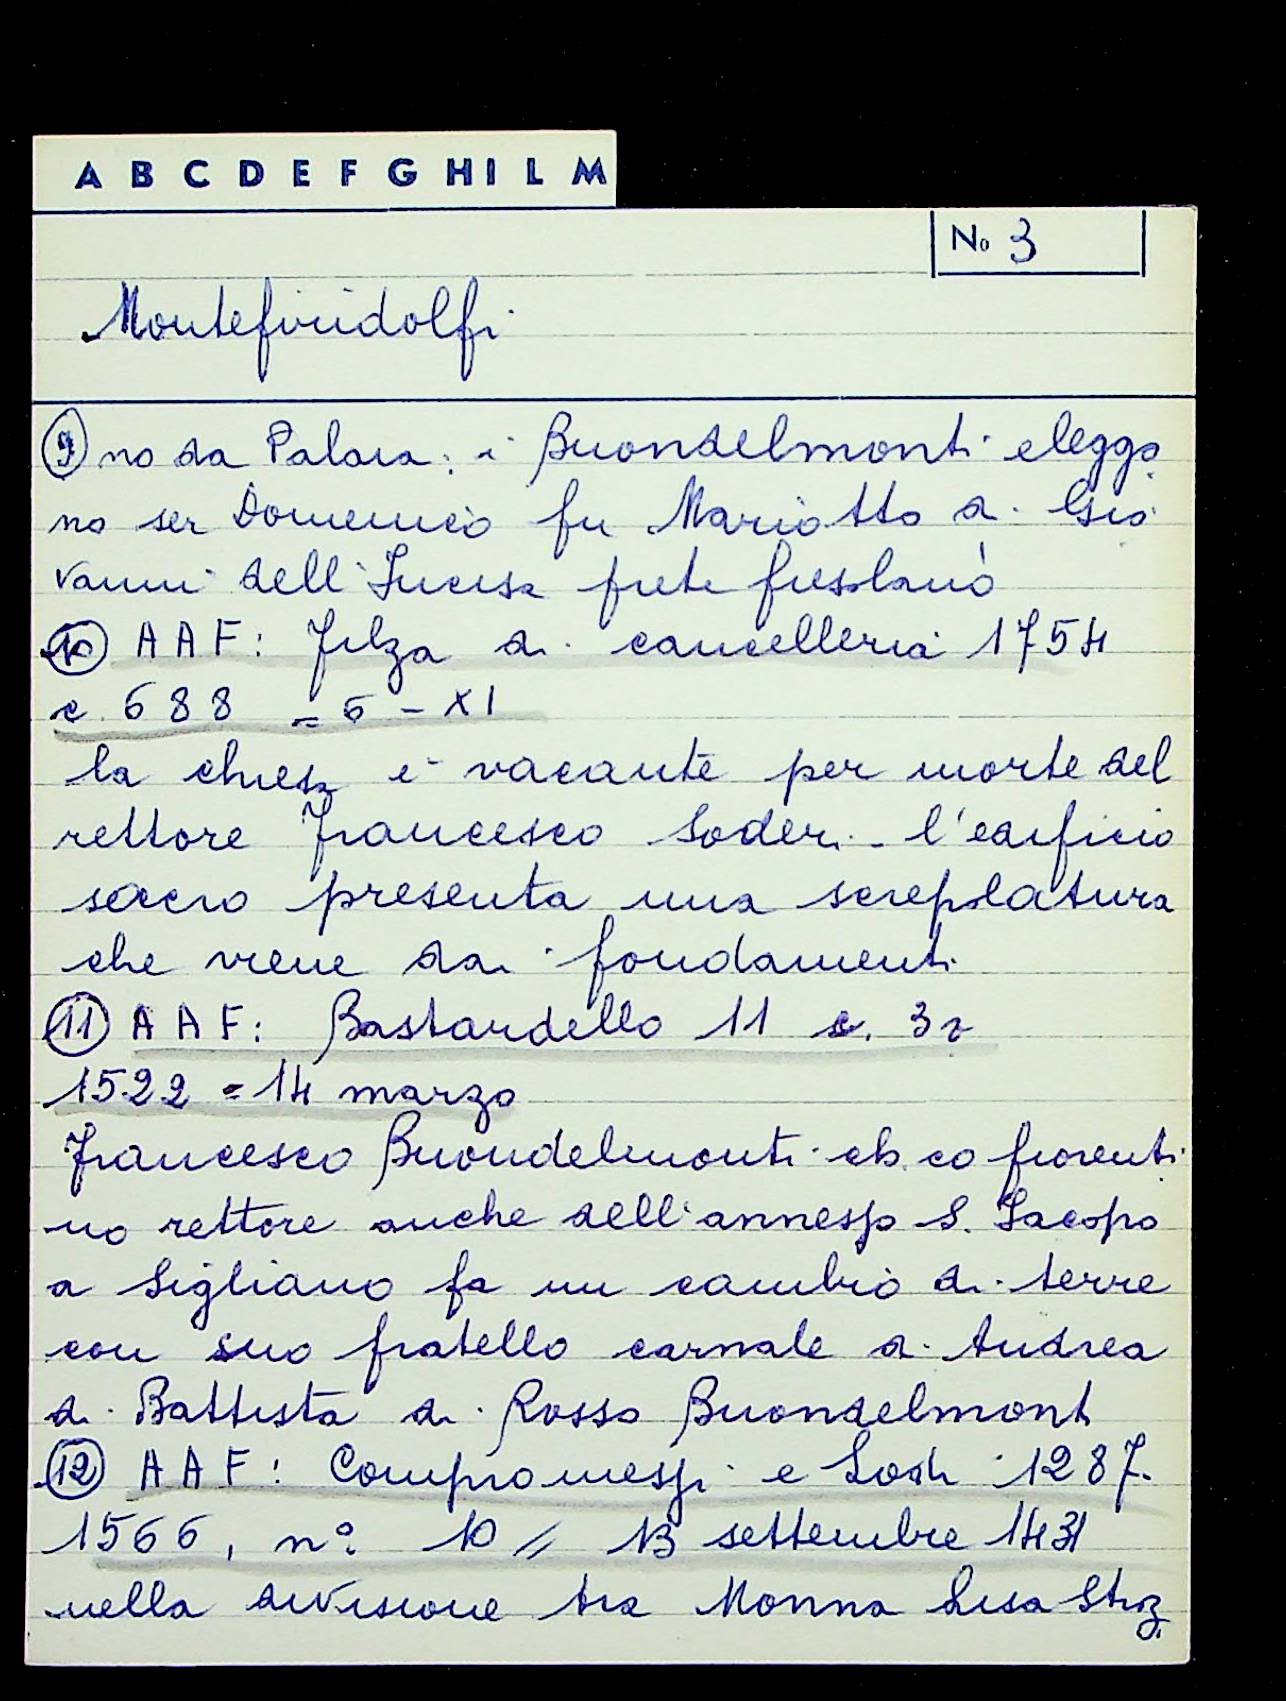 A B C D E F G H I L M
No 3
Montefiridolfi
⑨ no da Palaia: i Buondelmonti eleggo
no ser Domenico fu Mariotto di Gio
vanni dell'Incisa prete fiesolano
⑩ AAF: Filza di cancelleria 1754
c. 688 = 6 - XI
la chiesa è vacante per morte del
rettore Francesco Soderi. l'edificio
sacro presenta una screpolatura
che viene dai fondamenti
⑪ AAF: Bastardello 11 c. 3r
1522 = 14 marzo
Francesco Buondelmonti ch.co fiorenti
no rettore anche dell'annesso S. Jacopo
a Sigliano fa un cambio di terre
con suo fratello carnale di Andrea
di Battista di Rosso Buondelmonti
⑫ AAF: Compromessi e Lodi 1287-
1566, n° 10 = 13 settembre 1431
nella divisione tra Monna Lisa Stroz